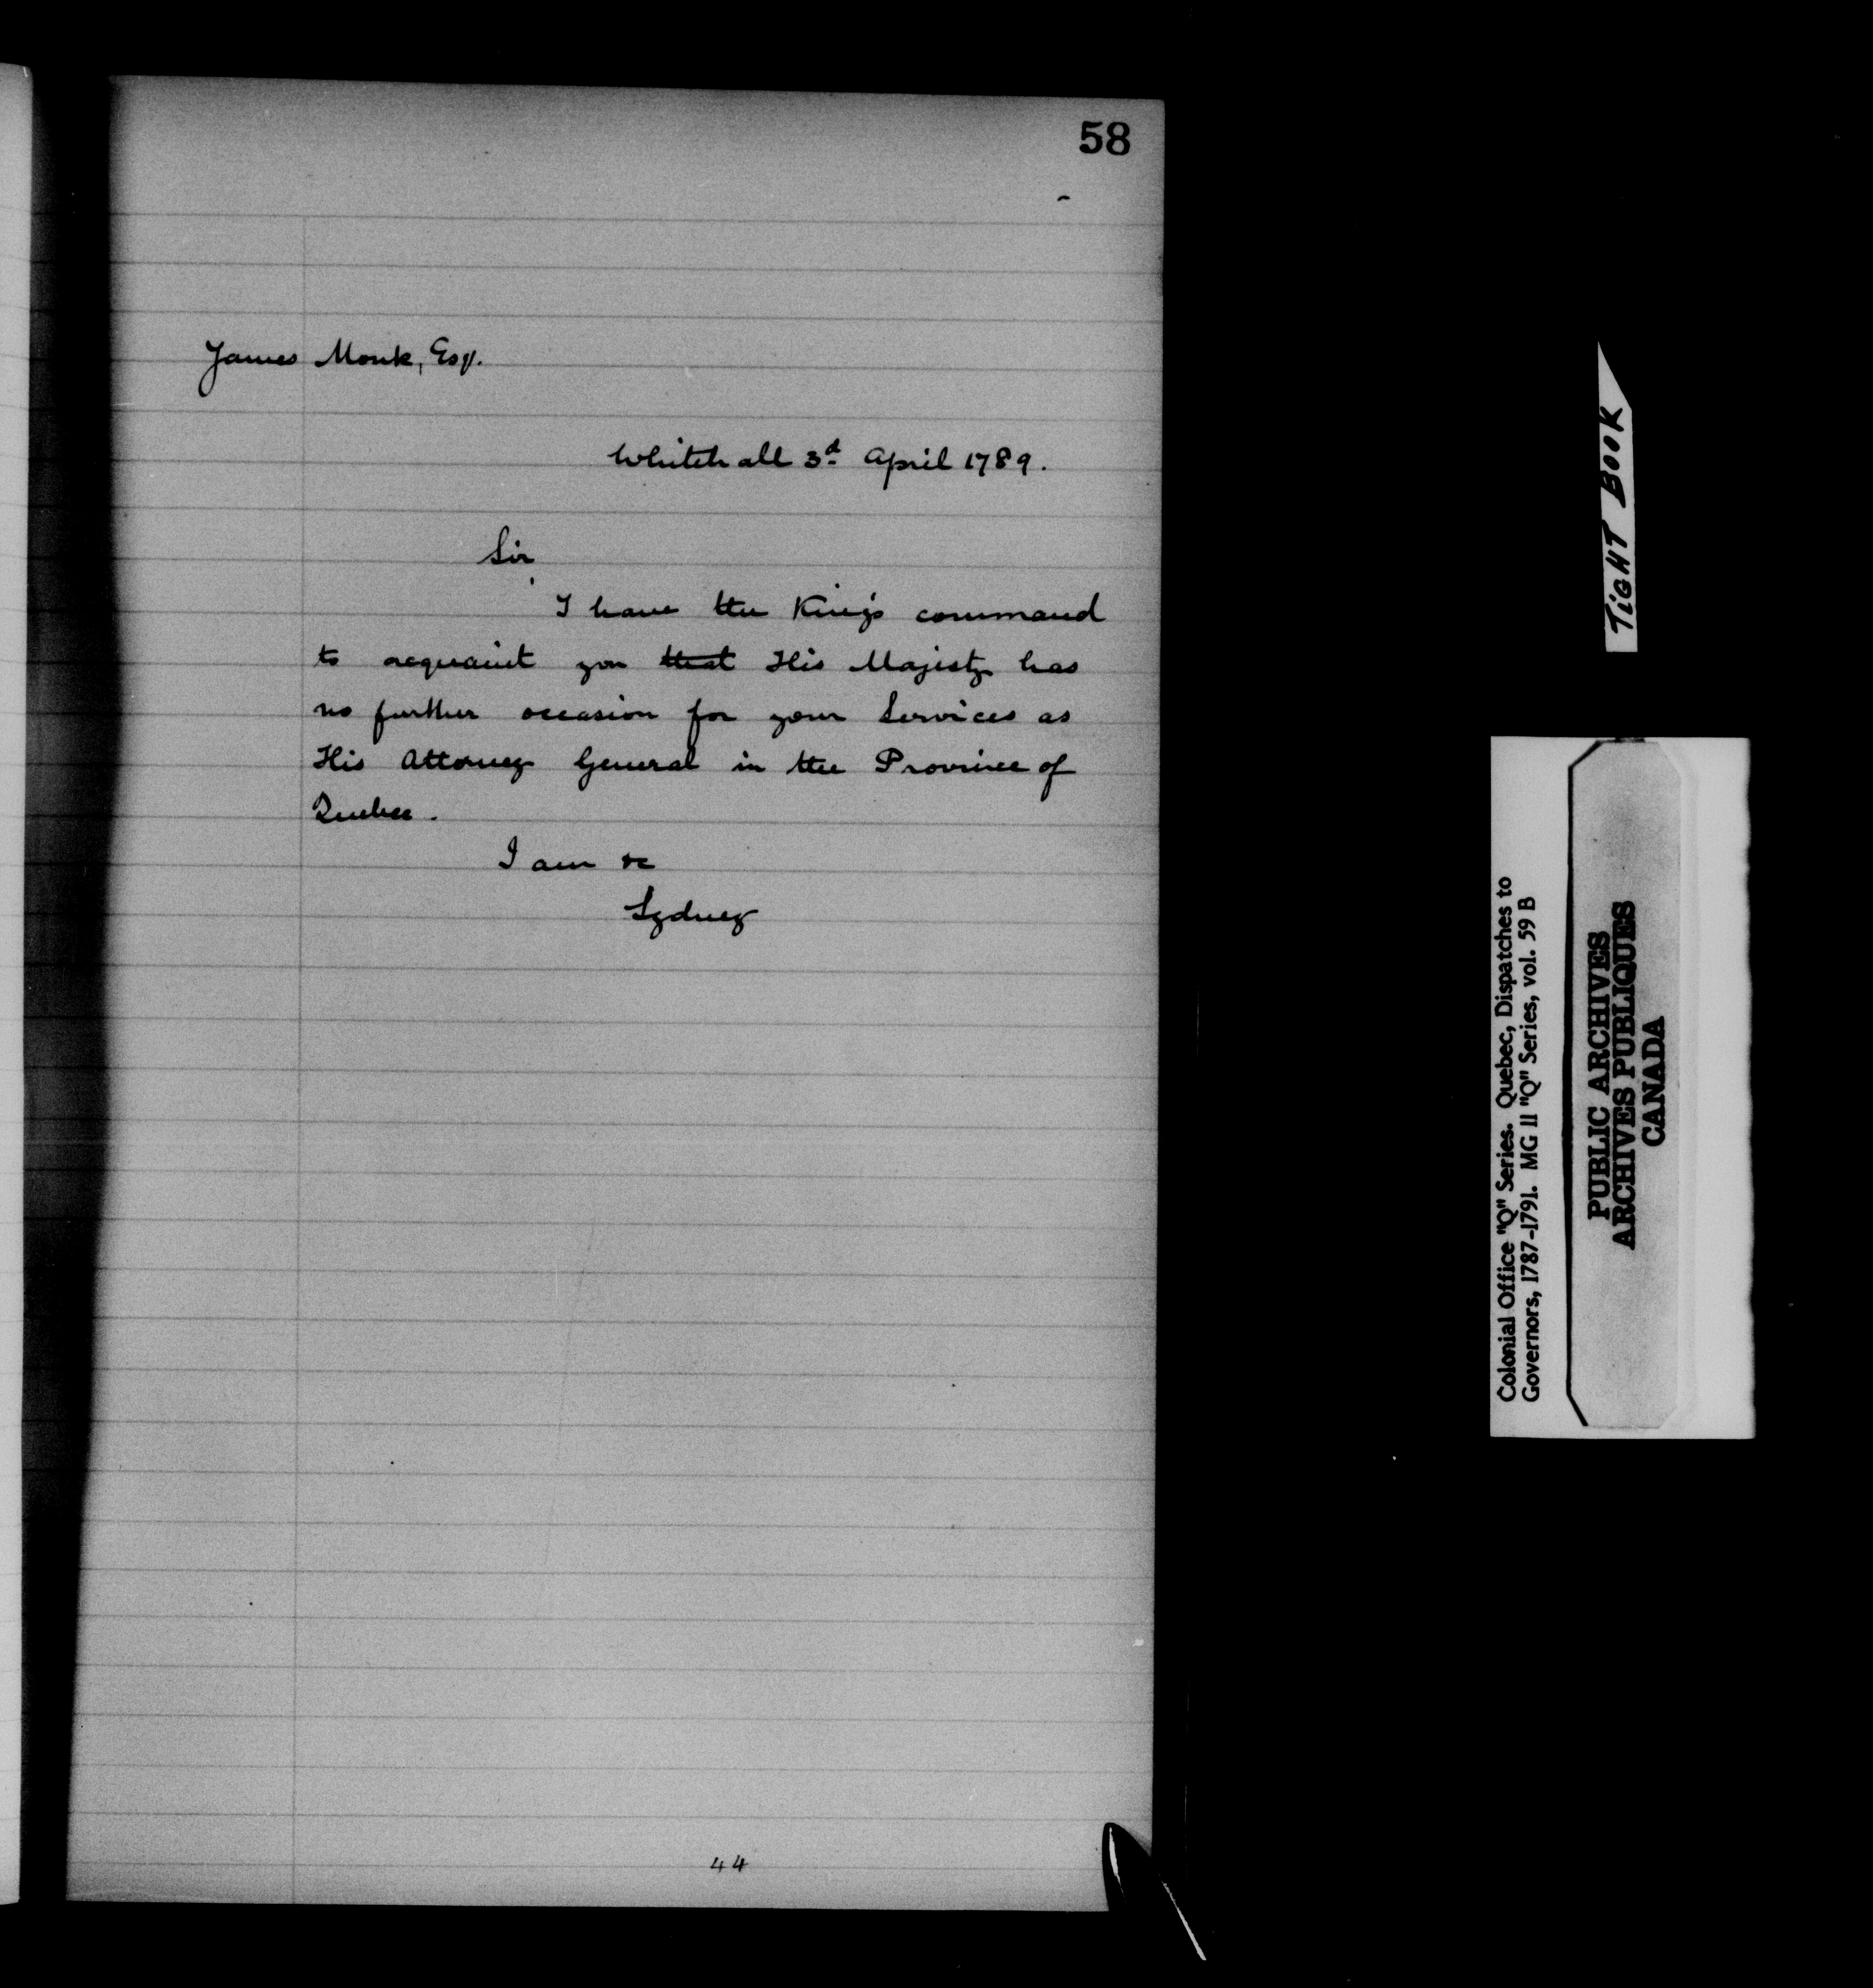 58
James Monk, Esq.
Whitehall 3d April 1789.
Sir,
I have the King's command
to acquaint you that His Majesty has
no further occasion for your Services as
His Attorney General in the Province of
Quebec.
I am &c
Sydney
44
TIGHT BOOK
Colonial Office "Q" Series. Quebec, Dispatches to
Governors, 1787-1791. MG 11 "Q" Series, vol. 59 B
PUBLIC ARCHIVES
ARCHIVES PUBLIQUES
CANADA